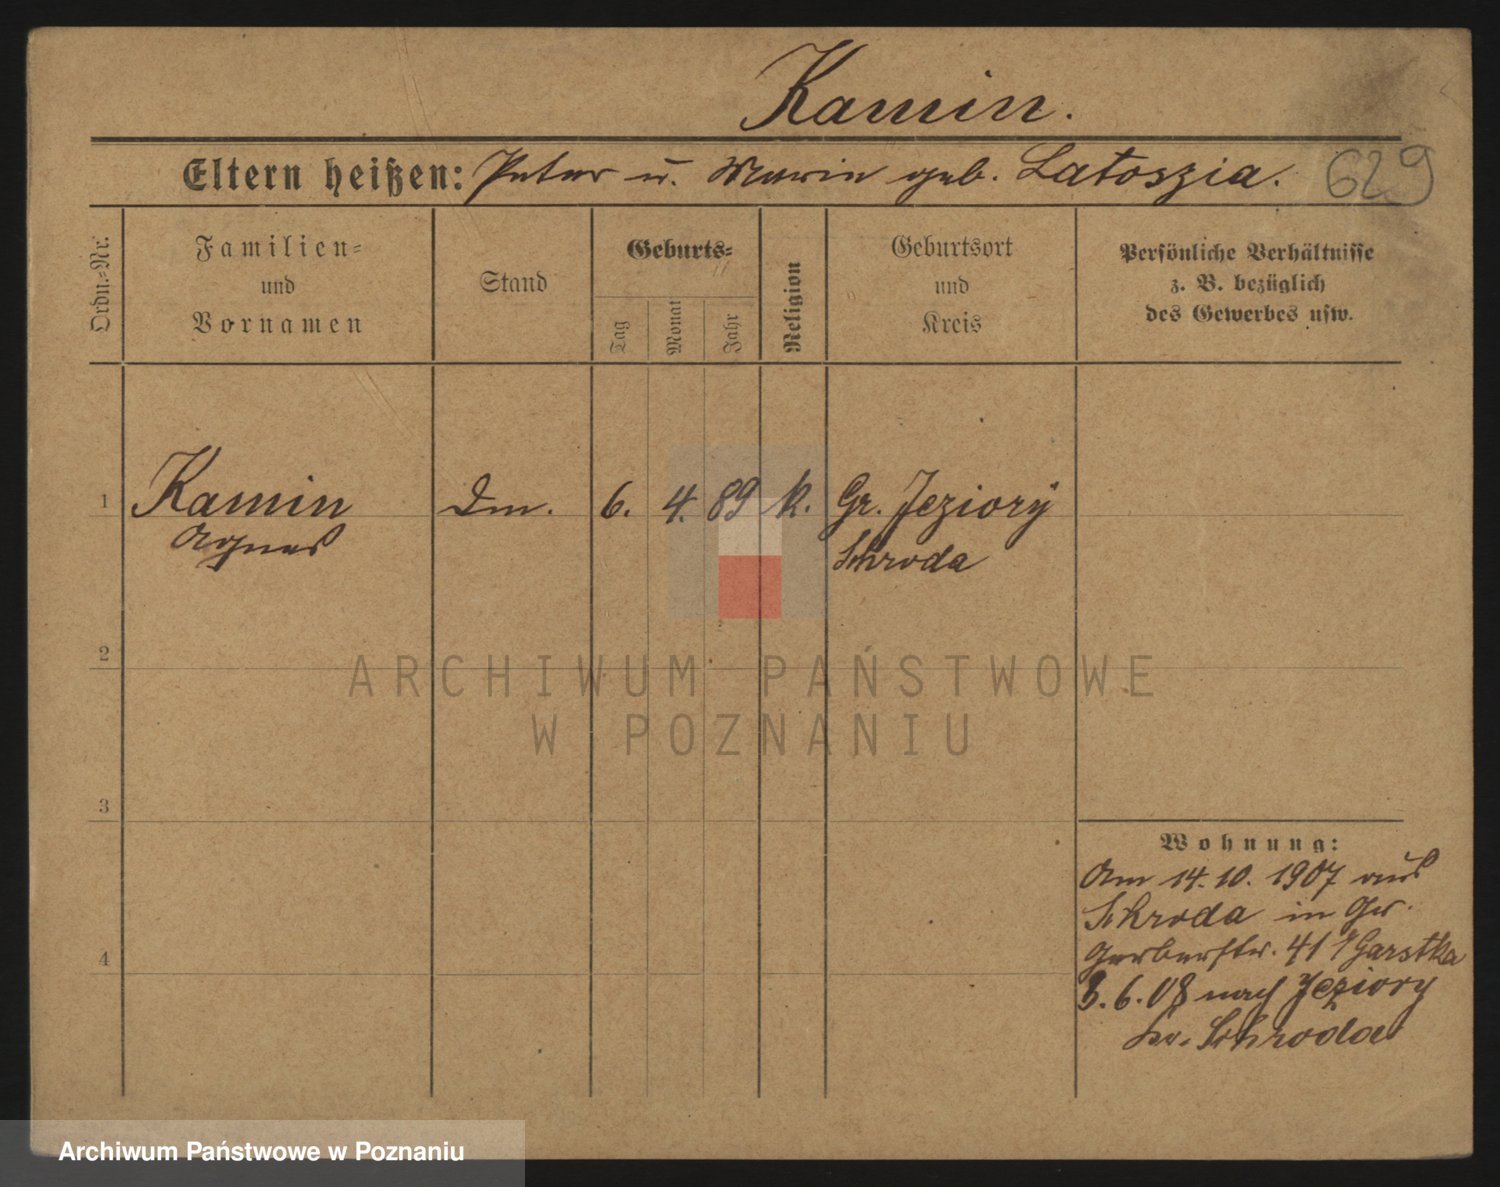 Kamin.
Eltern heißen: Peter u. Marie geb. Latoszia. 629
Ordn.=Nr.
Familien=
und
Vornamen
Stand
Geburts=
Tag
Monat
Jahr
Religion
Geburtsort
und
Kreis
Persönliche Verhältnisse
z. B. bezüglich
des Gewerbes usw.
1 Kamin Dm. 6. 4. 89 k. Gr. Jeziory
Agnes Schroda
2
ARCHIWUM PAŃSTWOWE
W POZNANIU
3
Wohnung:
Am 14.10.1907 aus
Schroda in Gr.
4 Gerberstr. 41 Garstka
3.6.08 nach Jeziory
Schroda
Archiwum Państwowe w Poznaniu